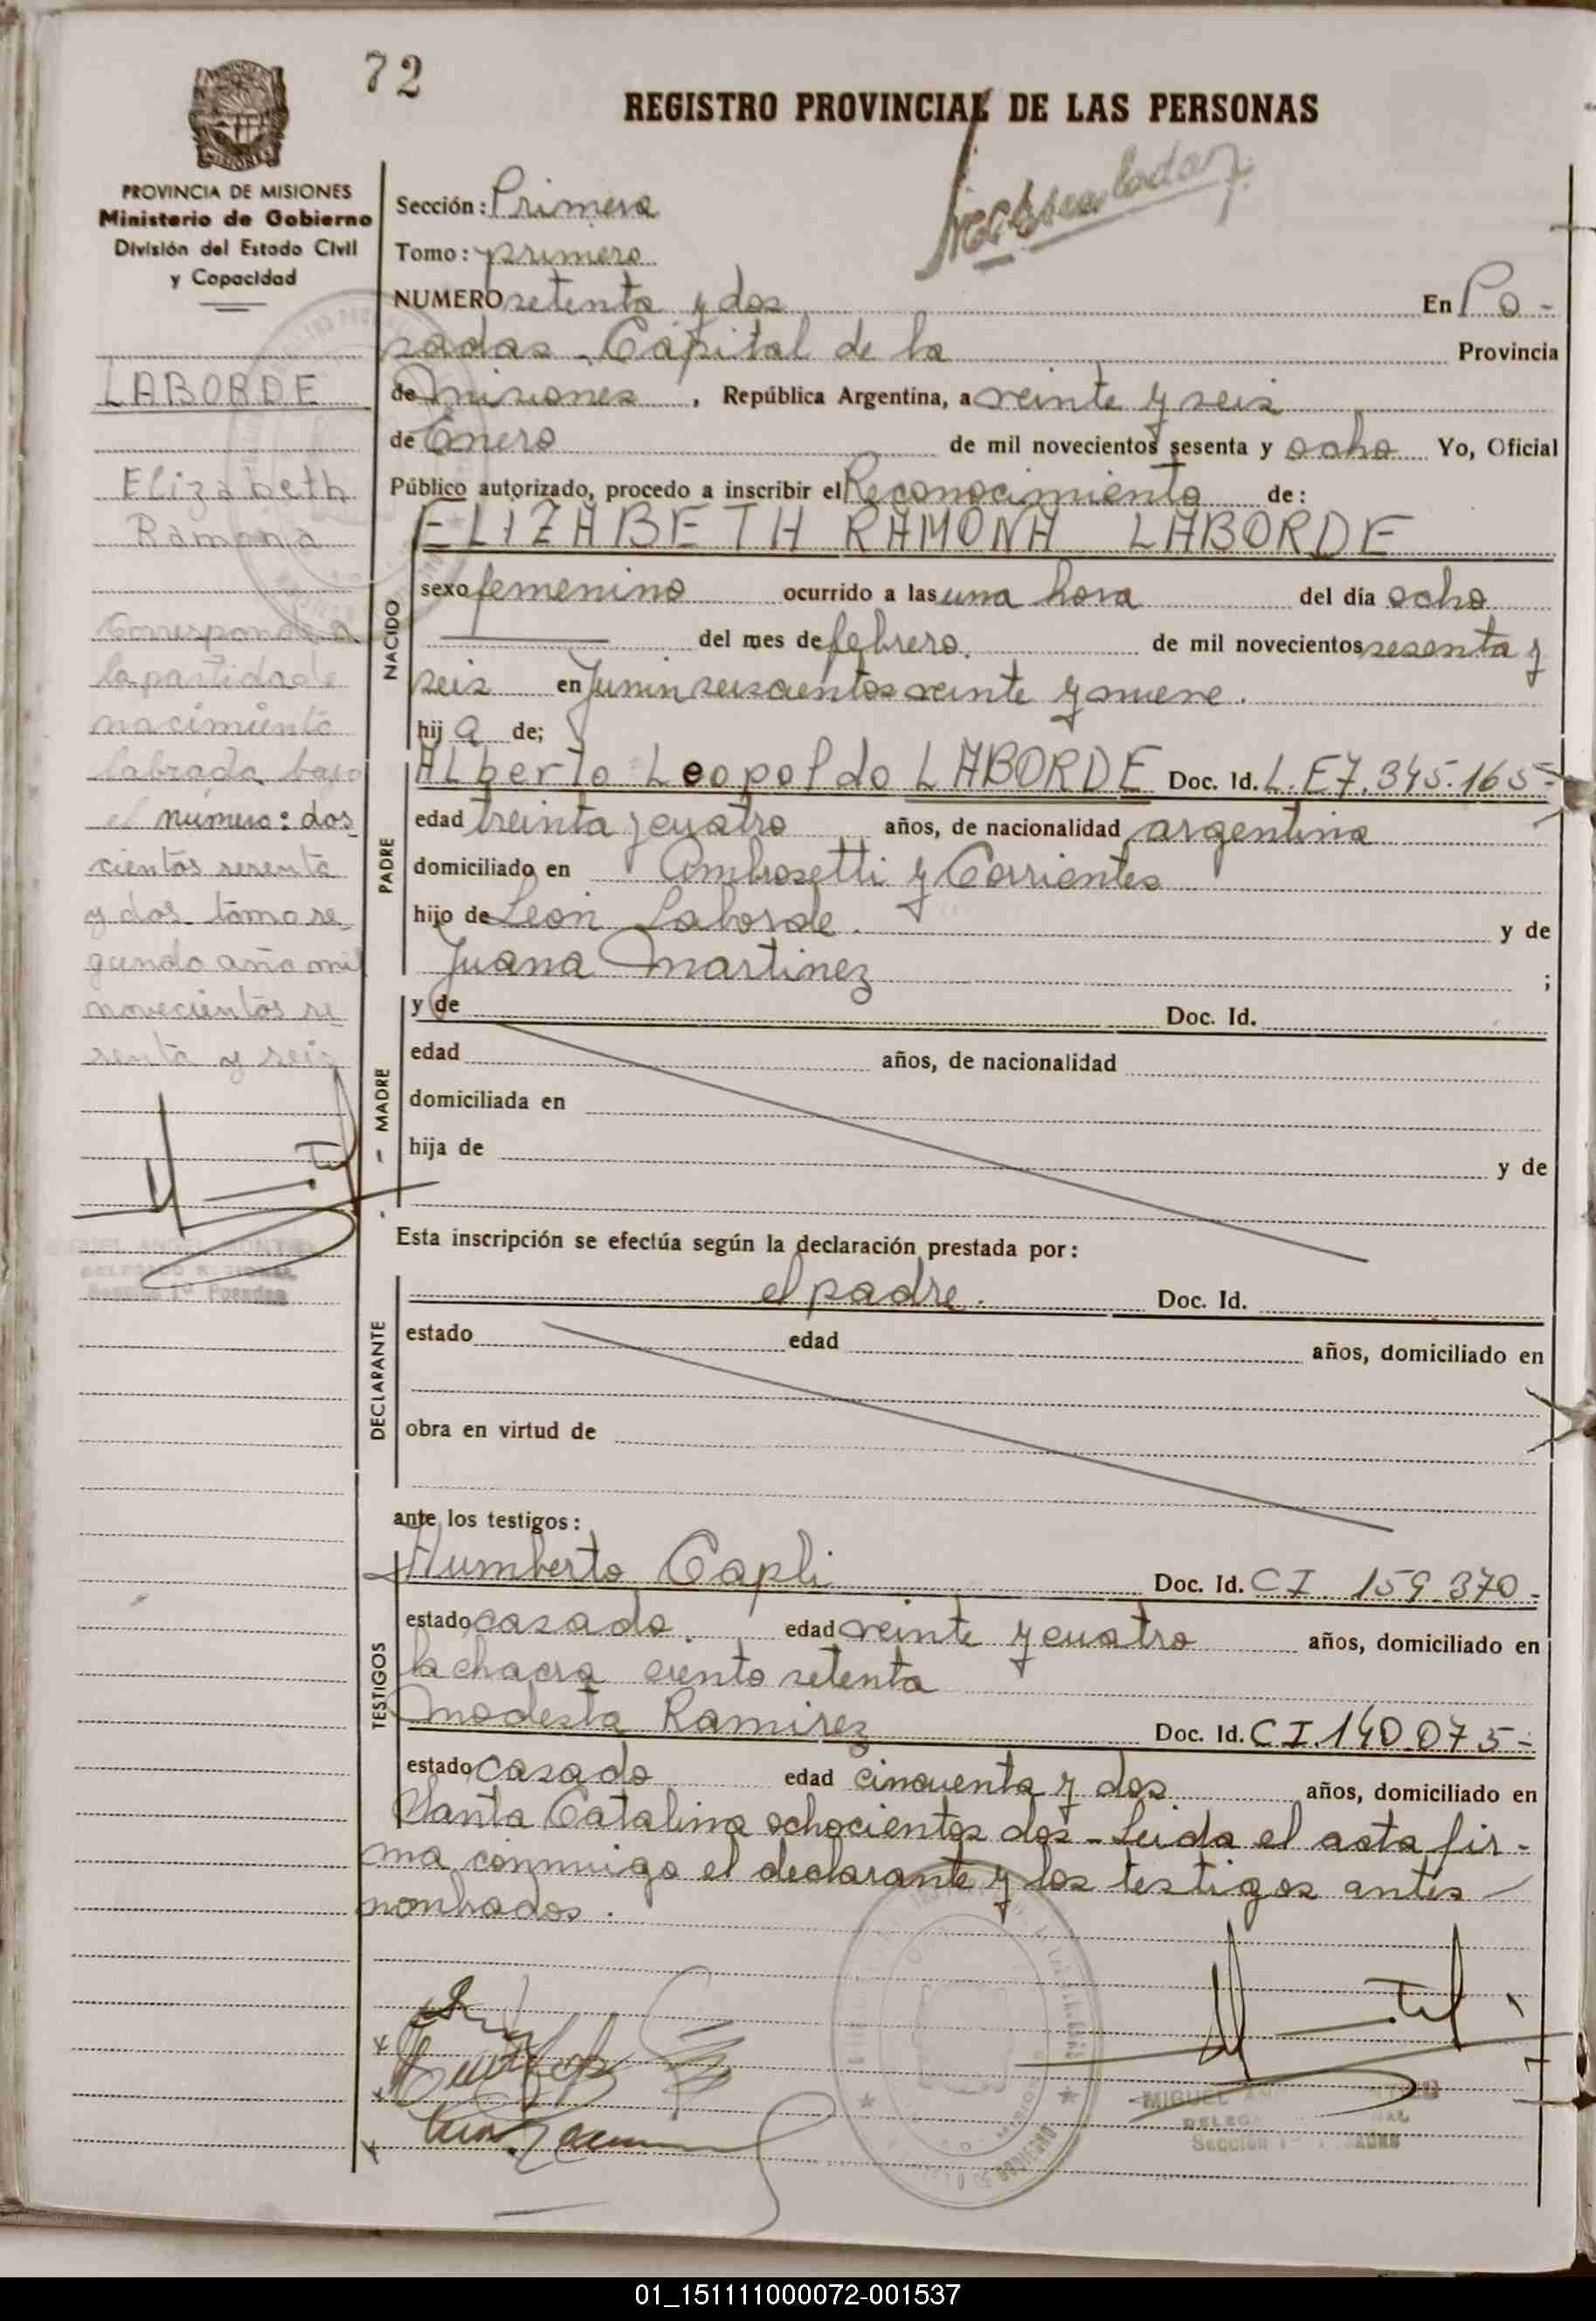 72
REGISTRO PROVINCIAL DE LAS PERSONAS
PROVINCIA DE MISIONES
Ministerio de Gobierno
División del Estado Civil
y Capacidad
LABORDE
Elizabeth
Ramona
Corresponde a
la partida de
nacimiento
labrada bajo
el número: dos
cientos sesenta
y dos tomo se_
gundo año mil
novecientos se_
senta y seis
Sección 1ª Posadas
Sección: Primera
Tomo: primero
NUMERO setenta y dos En Po-
sadas - Capital de la Provincia
de misiones, República Argentina, a veinte y seis
de Enero de mil novecientos sesenta y ocho Yo, Oficial
Público autorizado, procedo a inscribir el Reconocimiento de:
ELIZABETH RAMONA LABORDE
NACIDO
sexo femenino ocurrido a las una hora del día ocho
del mes de febrero. de mil novecientos sesenta y
seis en Junin seiscientos veinte y nueve.
hij a de;
PADRE
Alberto Leopoldo LABORDE Doc. Id. L. E 7.345.165-
edad treinta y cuatro años, de nacionalidad argentina
domiciliado en Ambrosetti y Corrientes
hijo de Leon Laborde. y de
Juana Martinez ;
MADRE
y de Doc. Id.
edad años, de nacionalidad
domiciliada en
hija de y de
Esta inscripción se efectúa según la declaración prestada por:
DECLARANTE
el padre. Doc. Id.
estado edad años, domiciliado en
obra en virtud de
ante los testigos:
TESTIGOS
Humberto Capli Doc. Id. C I. 159.370-
estado casado. edad veinte y cuatro años, domiciliado en
la chacra ciento setenta
Modesta Ramirez Doc. Id. C I. 140.075-
estado casado edad cincuenta y dos años, domiciliado en
Santa Catalina ochocientos dos - Leida el acta fir-
ma conmigo el declarante y los testigos antes
nombados.
MIGUEL
01_151111000072-001537